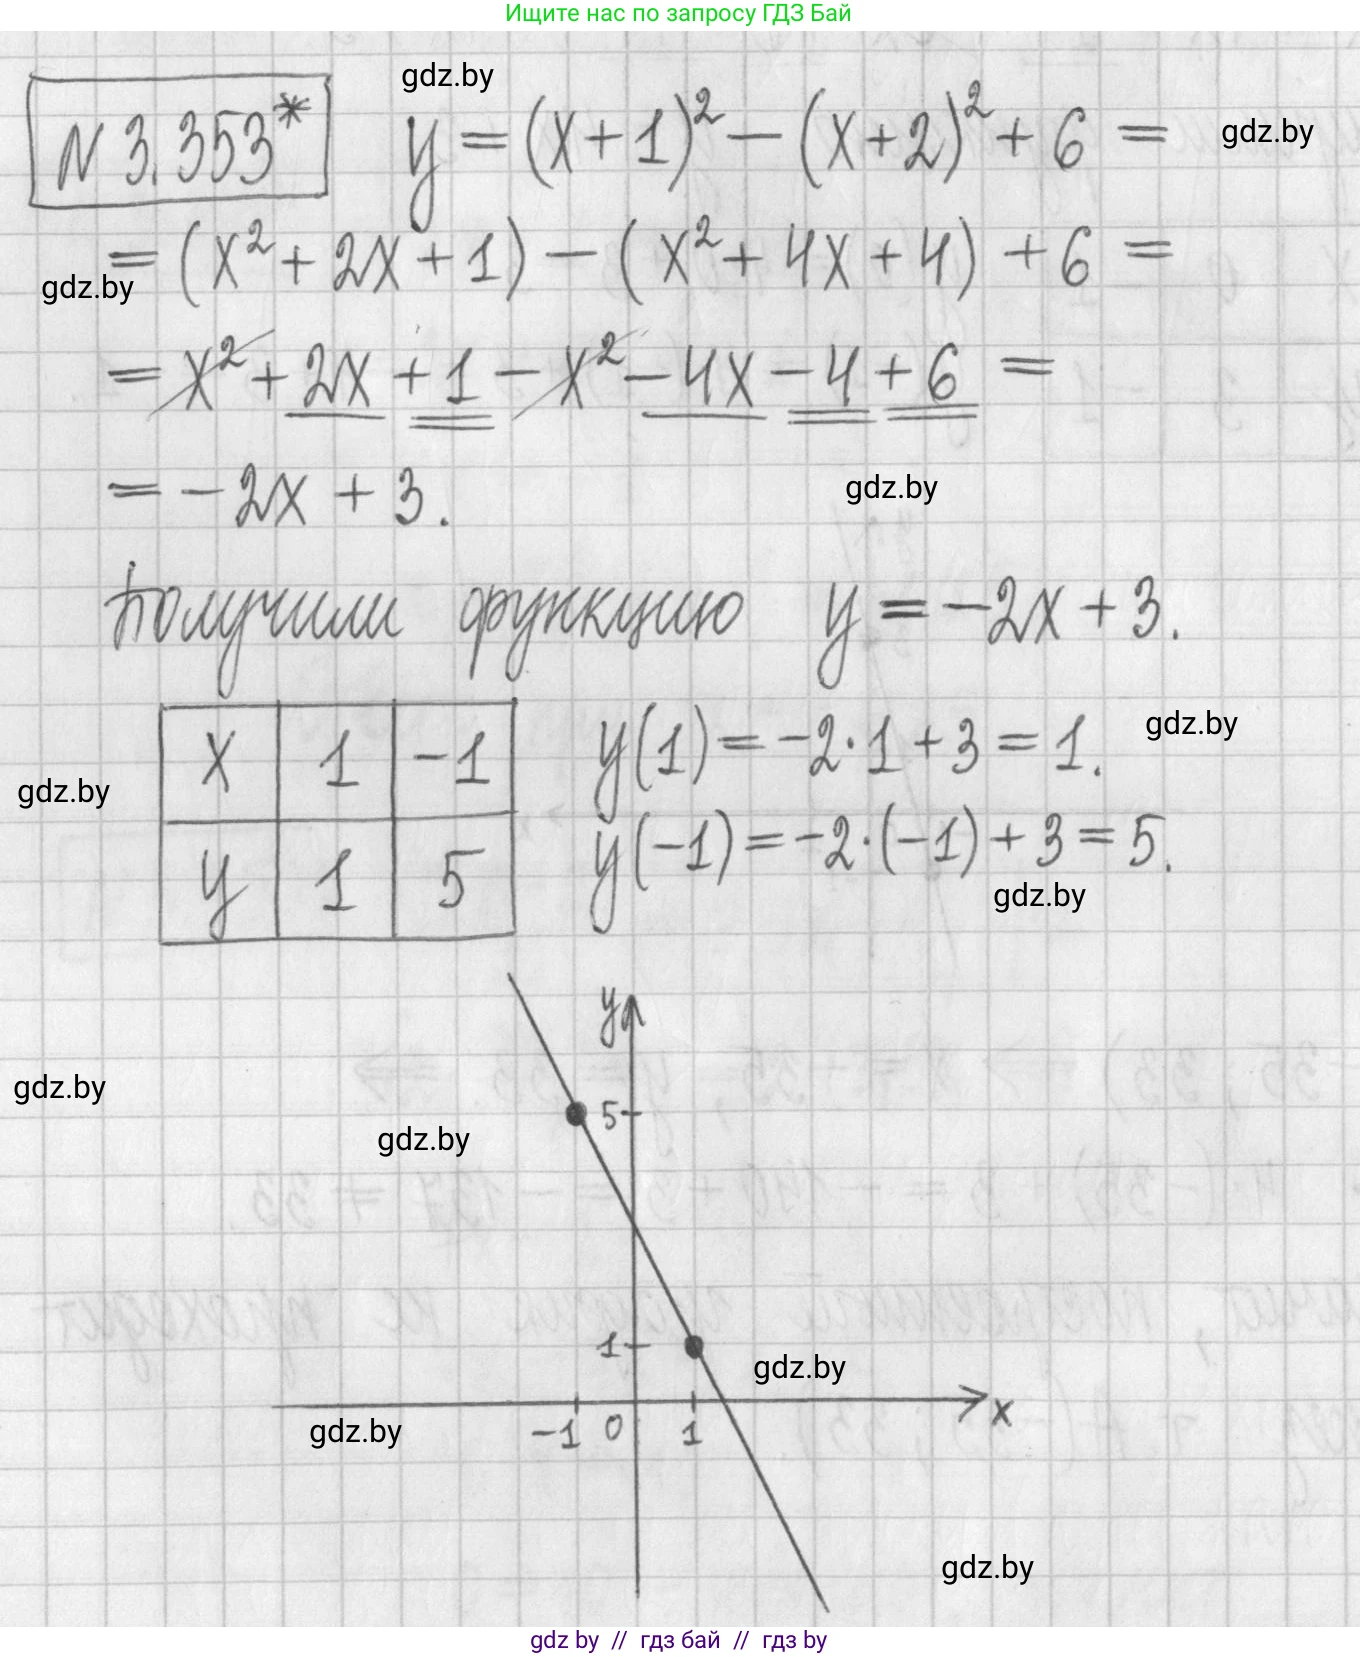 Ищите нас по запросу ГДЗ Бай
gdz.by
N 3.353* y = (x+1)² − (x+2)² + 6 =
gdz.by
= (x² + 2x + 1) − (x² + 4x + 4) + 6 =
gdz.by
= x² + 2x + 1 − x² − 4x − 4 + 6 =
= −2x + 3.
gdz.by
Получили функцию y = −2x + 3.
x 1 −1
y(1) = −2·1 + 3 = 1.
gdz.by
gdz.by
y 1 5
y(−1) = −2·(−1) + 3 = 5.
gdz.by
y
gdz.by
5
gdz.by
1
gdz.by
−1 0 1 x
gdz.by
gdz.by
gdz by // гдз бай // гдз by